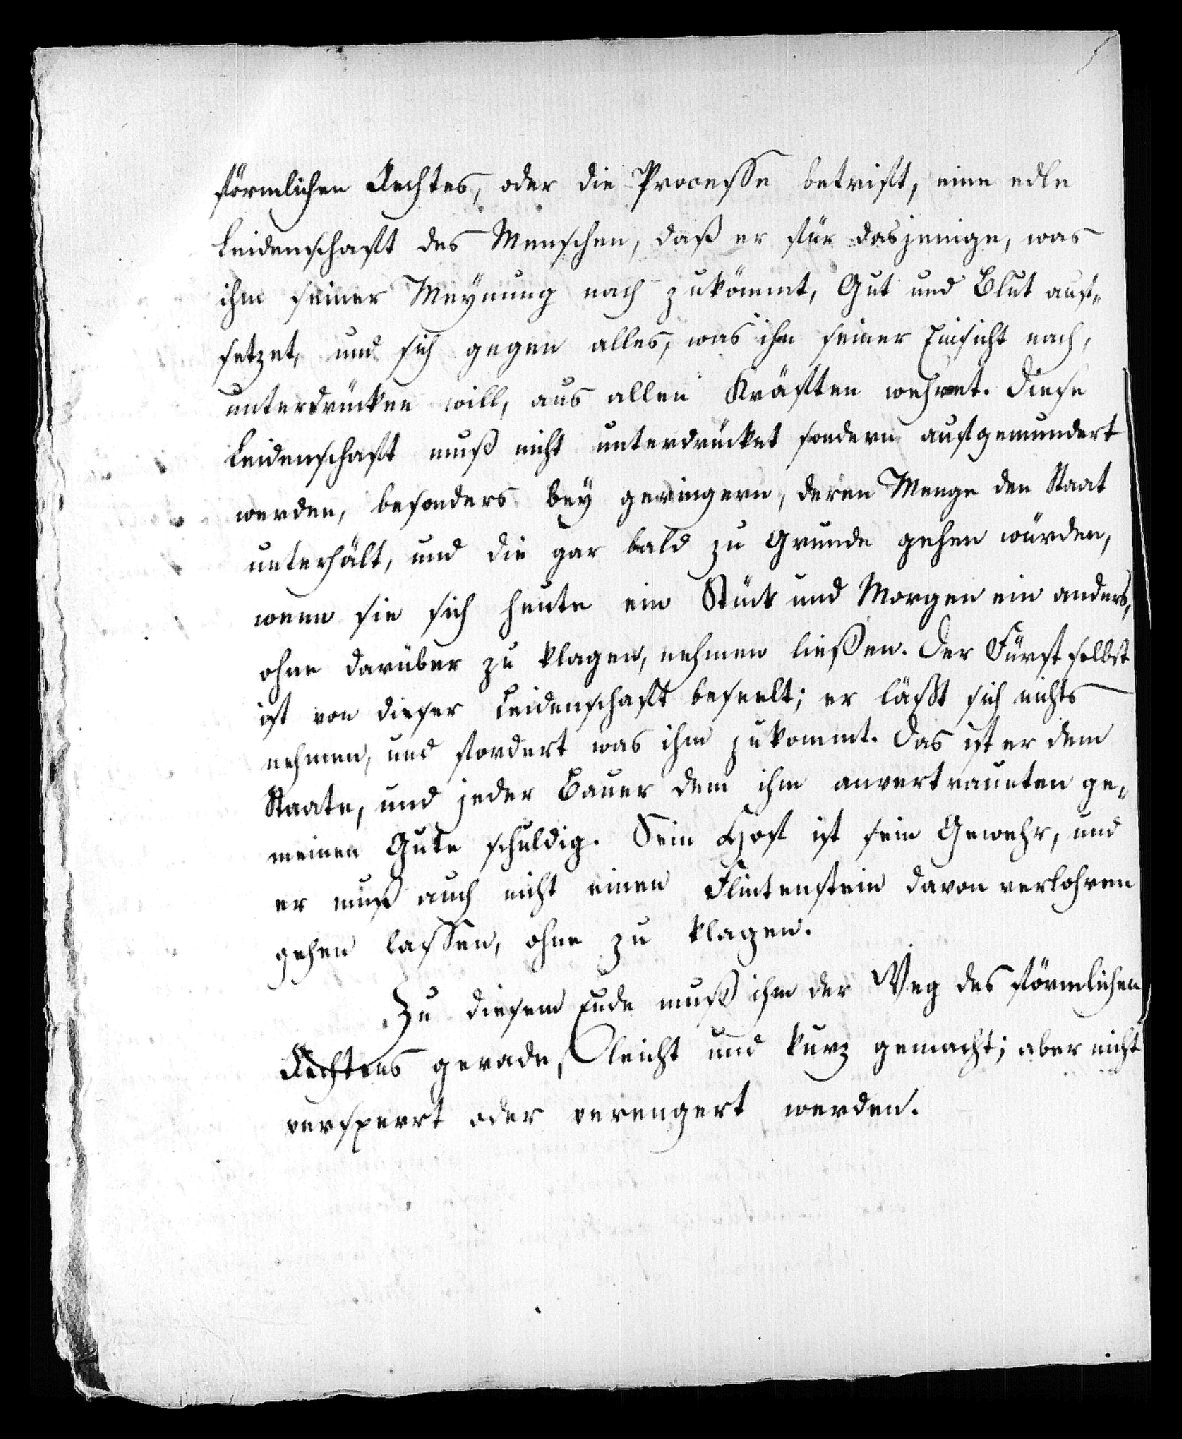 förmlichen Rechtes, oder die Processe betrift, eine edle
Leidenschaft des Menschen, daß er für dasjenige, was
ihm seiner Meynung nach zukömmt, Gut und Blut auf-
setzet, und sich gegen alles, was ihn seiner Einsicht nach,
unterdrücken will, aus allen Kräften wehret. Diese
Leidenschaft muß nicht unterdrücket sondern aufgemundert
werden, besonders bey geringern, deren Menge den Staat
unterhält, und die gar bald zu Grunde gehen würden,
wenn sie sich heute ein Stück und Morgen ein anders,
ohne darüber zu klagen, nehmen ließen. Der Fürst selbst
ist von dieser Leidenschaft beseelt; er läßt sich nichts
nehmen, und fordert was ihm zukommt. Das ist er dem
Staate, und jeder Bauer dem ihm anvertraueten ge-
meinen Gute schuldig. Sein Hof ist sein Gewehr, und
er muß auch nicht einen Flintenstein davon verlohren
gehen lassen, ohne zu klagen.
Zu diesem Ende muß ihm der Weg des förmlichen
Rechtens gerade, leicht und kurz gemacht; aber nicht
versperrt oder verengert werden.